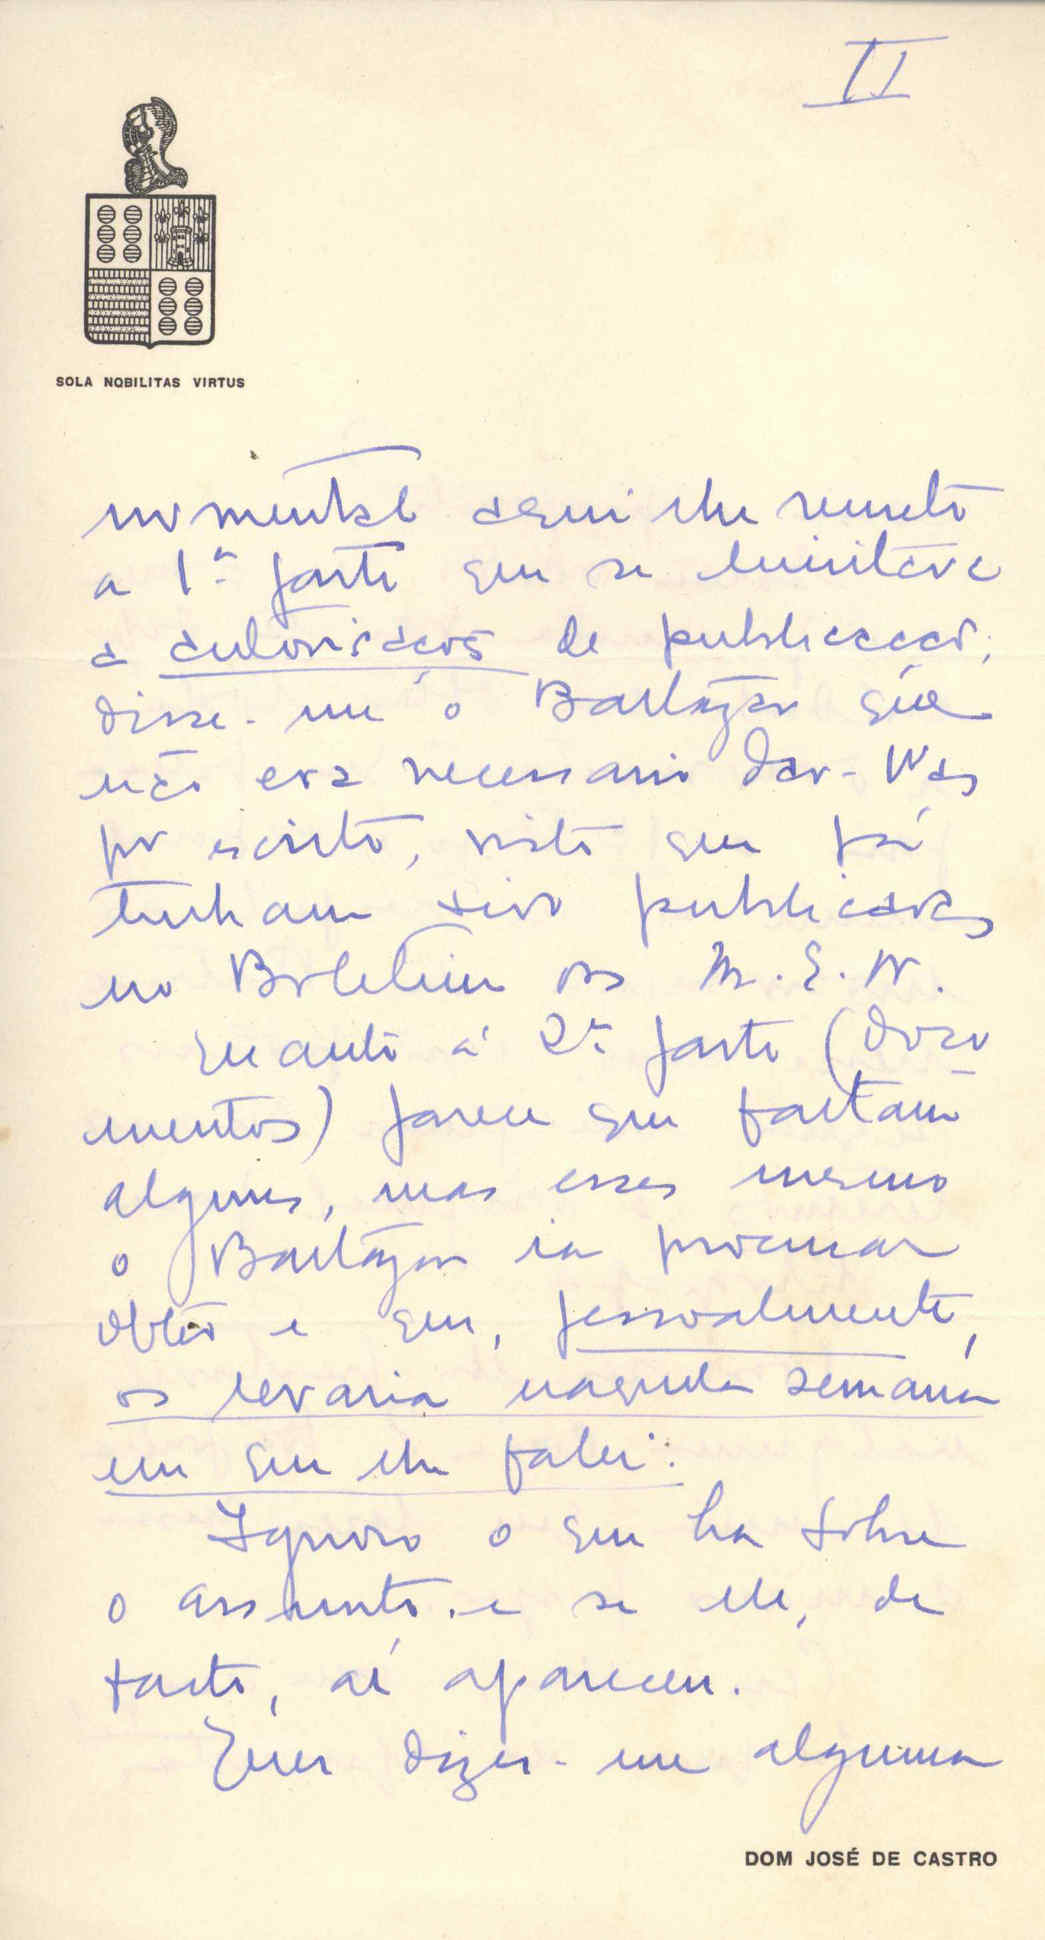 II
SOLA NOBILITAS VIRTUS
numental aqui lhe remeto
a 1ª parte que se limitava
a autorisações de publicação;
disse-me o Baltazar que
não era necessario dar-lh'as
por escrito, visto que já
tinham sido publicadas
no Boletim os M.E.N.
Quanto à 2ª parte (docu
mentos) parece que faltam
alguns, mas esses mesmo
o Baltazar ia procurar
obter e que, pessoalmente,
os levaria naquela semana
em que lhe falei.
Ignoro o que ha sobre
o assunto e se ele, de
facto, aí apareceu.
Quer dizer-me alguma
DOM JOSÉ DE CASTRO